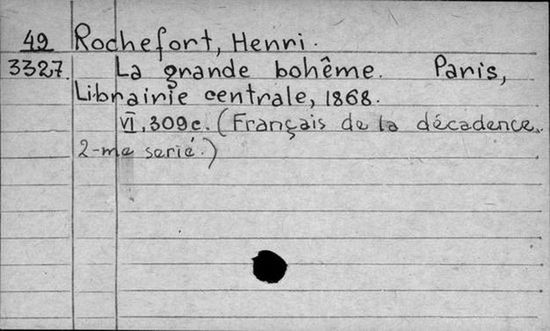 49 Rochefort, Henri.
3327. La grande bohême. Paris,
Librairie centrale, 1868.
VI, 309c. (Français de la décadence.
2-me serié.)